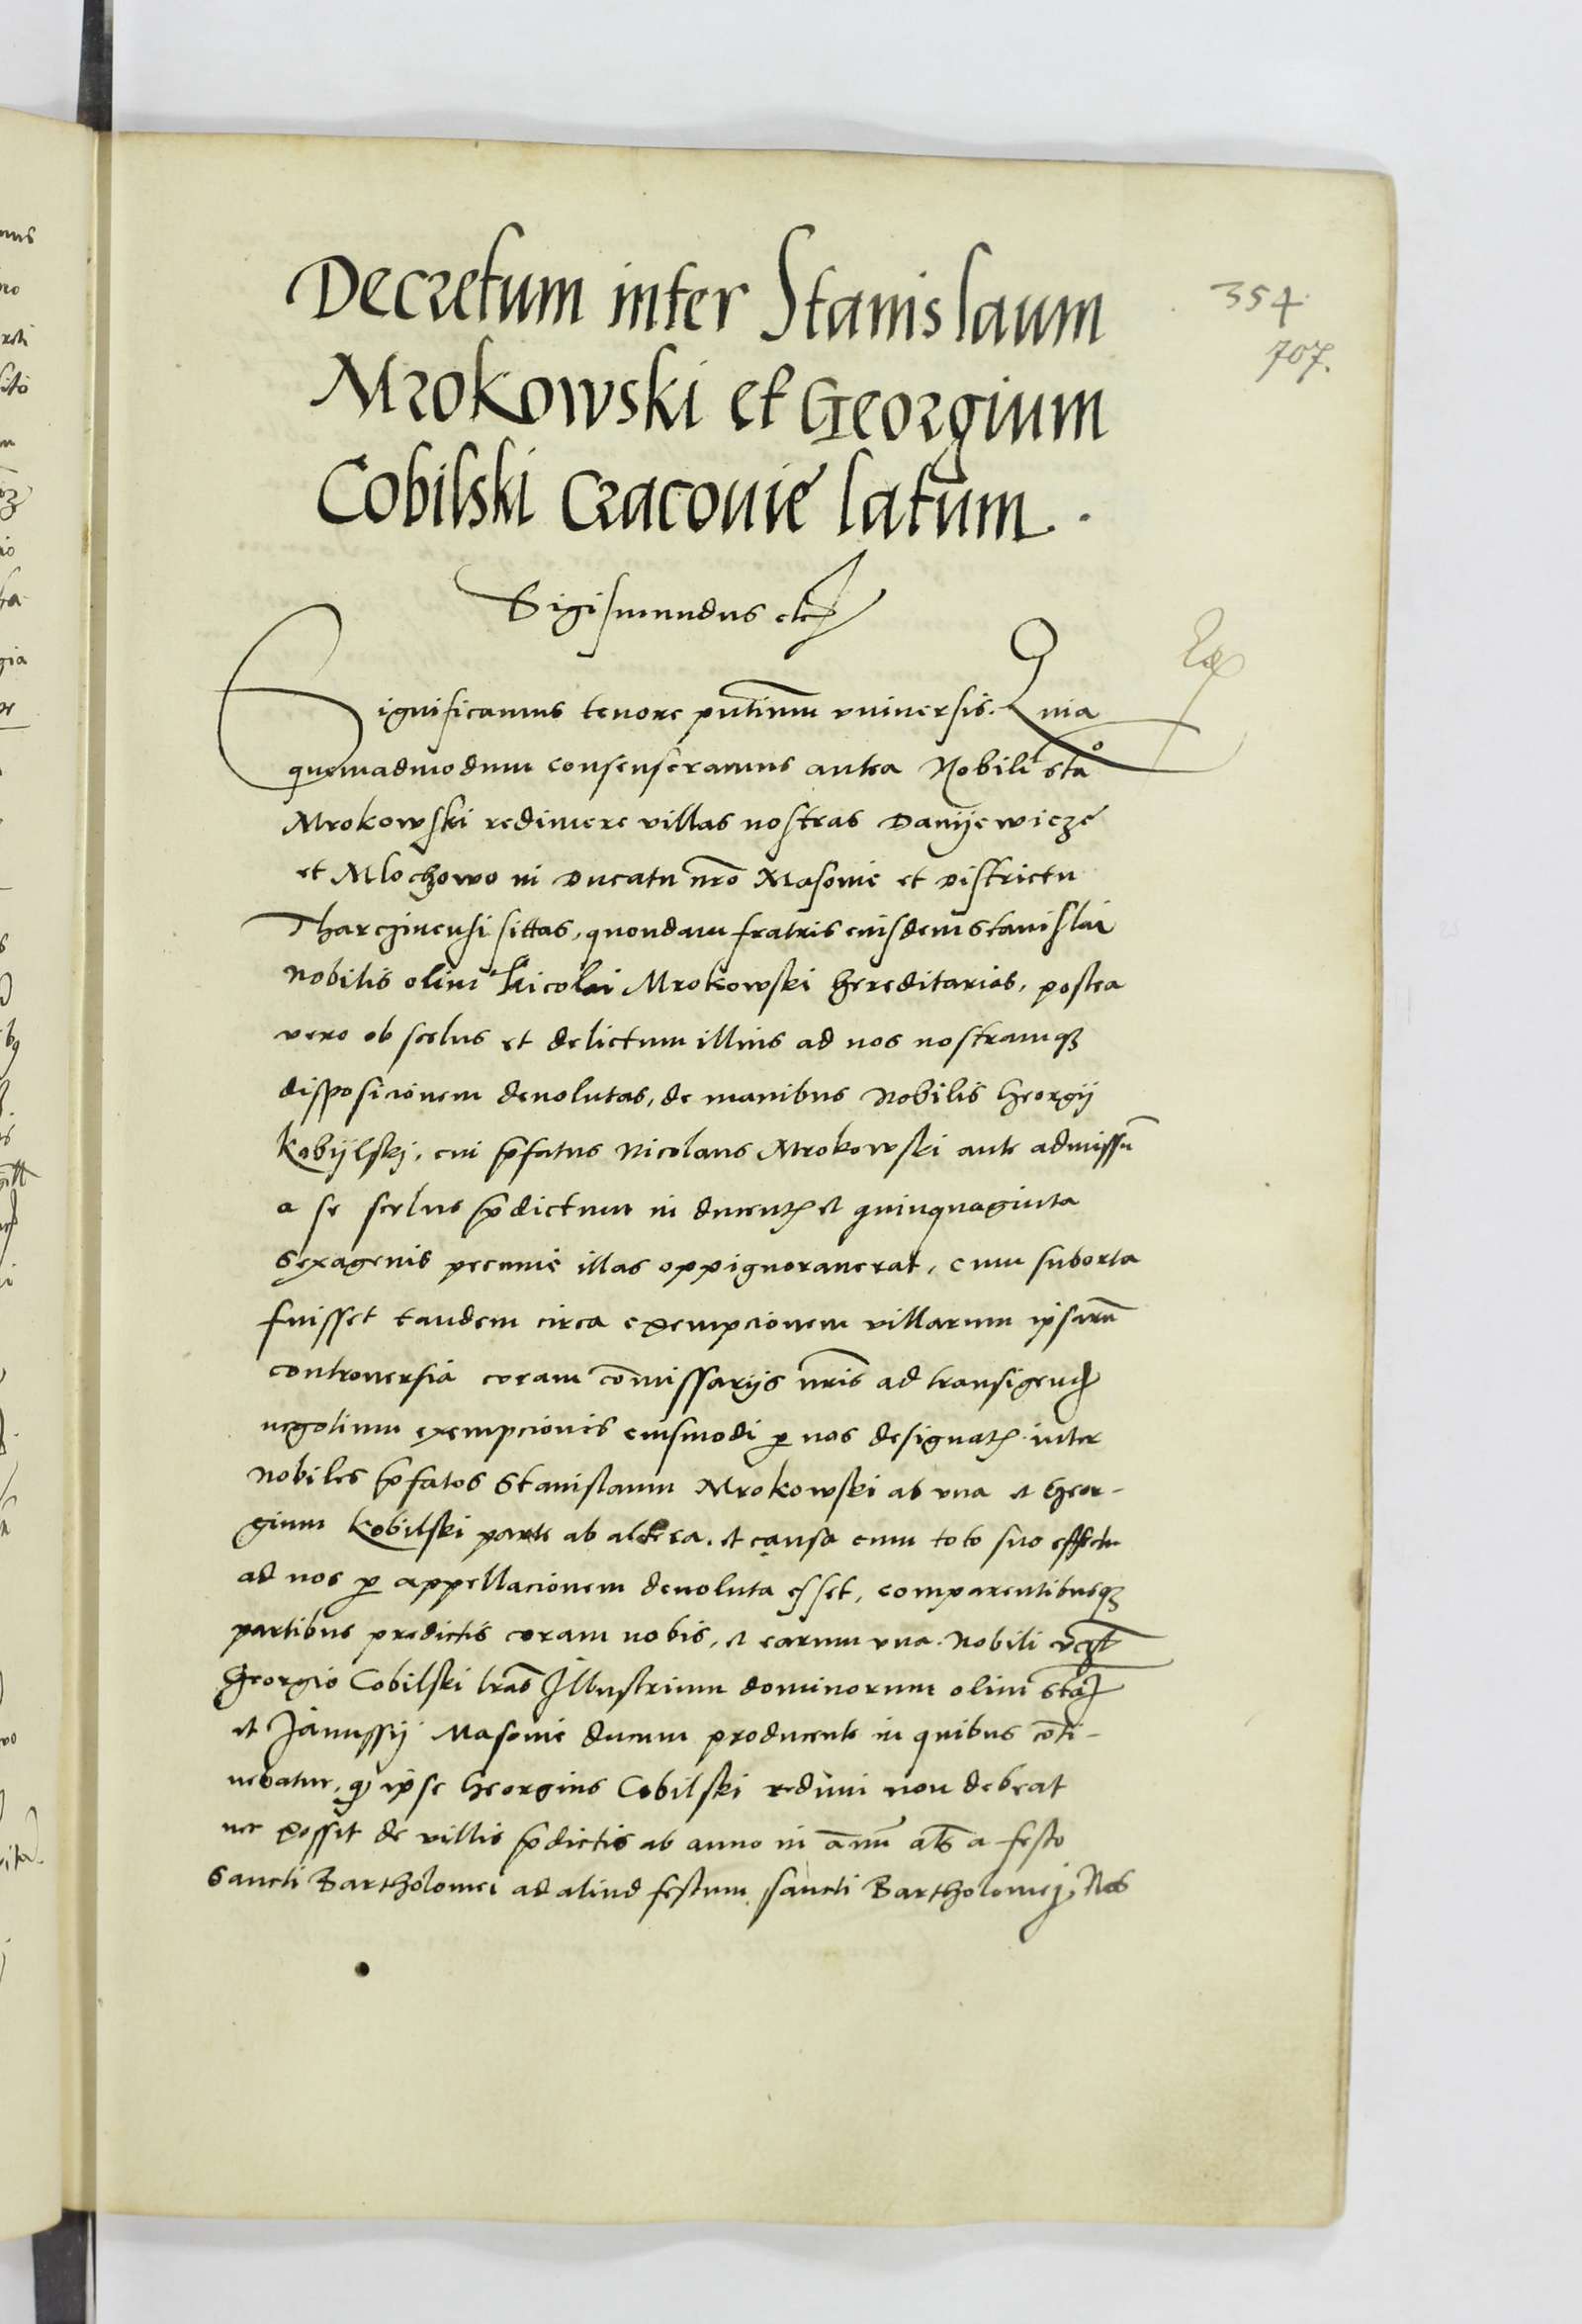 Decretum inter Stanislaum
354
Mrokowski et Georgium
707.
Cobilski Cracouie latum.
Sigismundus etc
Significamus tenore pñtium vniuersis. Quia
quemadmodum consenseramus antea Nobili Stao
Mrokowski redimere villas nostras Danijewicze
et Mlochowo in Ducatu nro Masouie et Districtu
Tharczinensi sittas, quondam fratris eiusdem Stanislai
Nobilis olim Nicolai Mrokowski hereditarias, postea
vero ob scelus et delictum illius ad nos nostramq3
disposicionem deuolutas, de manibus Nobilis Georgij
Kobijlskj, cui p̃fatus Nicolaus Mrokowski ante admissũ
a se scelus p̃dictum in ducent et quinquaginta
Sexagenis pecunie illas oppignorauerat, cum suborta
fuisset tandem circa exempcionem villarum ipsarũ
controuersia coram com̃issarijs nris ad transigend
negotium exempcionis eiusmodi p nos designat inter
Nobiles p̃fatos Stanislaum Mrokowski ab vna et Geor-
gium Kobilski parte ab altera. et causa cum toto suo effectu
ad nos p appellacionem deuoluta esset, comparentibusq3
partibus predictis coram nobis, et earum vna Nobili
Georgio Cobilski lras Illustrium dominorum olim Sta
et Janussij Masouie ducum producente in quibus cõti-
nebatur, q ipse Georgius Cobilski redimi non debeat
nec possit de villis p̃dictis ab anno in ãnũ als a festo
Sancti Bartholomei ad aliud festum sancti Bartholomej, Nos